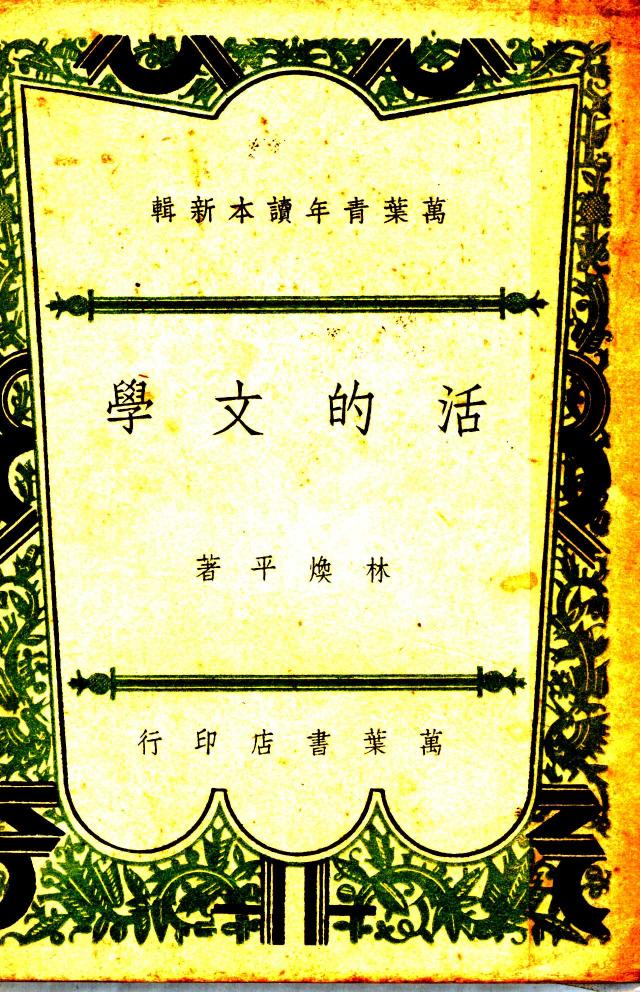 萬葉青年讀本新輯
活的文學
林煥平著
萬葉書店印行